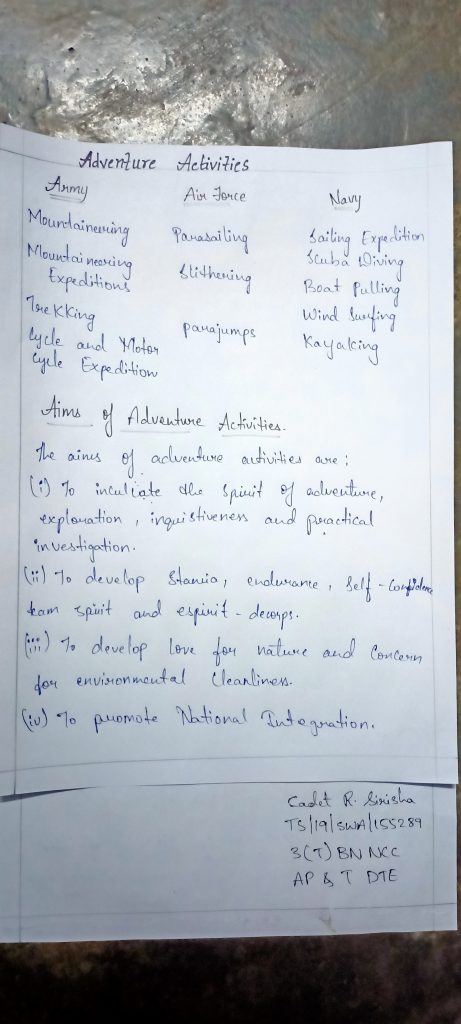 Adventure Activities
Army Air Force Navy
Mountaineering Parasailing Sailing Expedition
Mountaineering Slithering Scuba Diving
Expeditions Boat Pulling
Trekking Parajumps Wind Surfing
Cycle and Motor Kayaking
Cycle Expedition
Aims of Adventure Activities.
The aims of adventure activities are :
(i) To inculcate the spirit of adventure,
exploration , inquistiveness and practical
investigation.
(ii) To develop Stamia, endurance , Self - Confidence
team spirit and espirit - decorps.
(iii) To develop Love for nature and Concern
for environmental Cleanliness.
(iv) To promote National Integration.
Cadet R. Sirisha
TS/19/SWA/155289
3(T) BN NCC
AP & T DTE